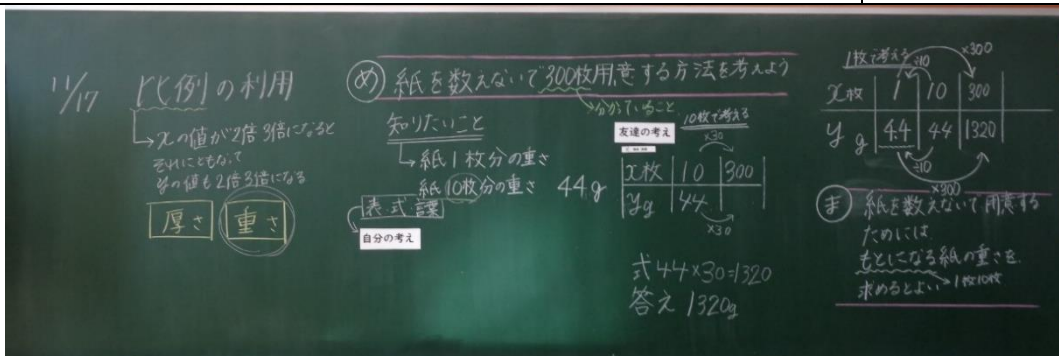 11/17
比例の利用
xの値が2倍3倍になると
それにともなって
yの値も2倍3倍になる
厚さ 重さ
め 紙を数えないで300枚用意する方法を考えよう
分かっていること
知りたいこと
紙1枚分の重さ
紙10枚分の重さ 44g
表 式 言葉
自分の考え
友達の考え
10枚で考える
×30
x枚 10 300
y g 44
×30
式 44×30=1320
答え 1320g
1枚で考える
÷10
×300
x枚 1 10 300
y g 4.4 44 1320
÷10
×300
ま 紙を数えないで用意する
ためには
もとになる紙の重さを
求めるとよい
1枚10枚